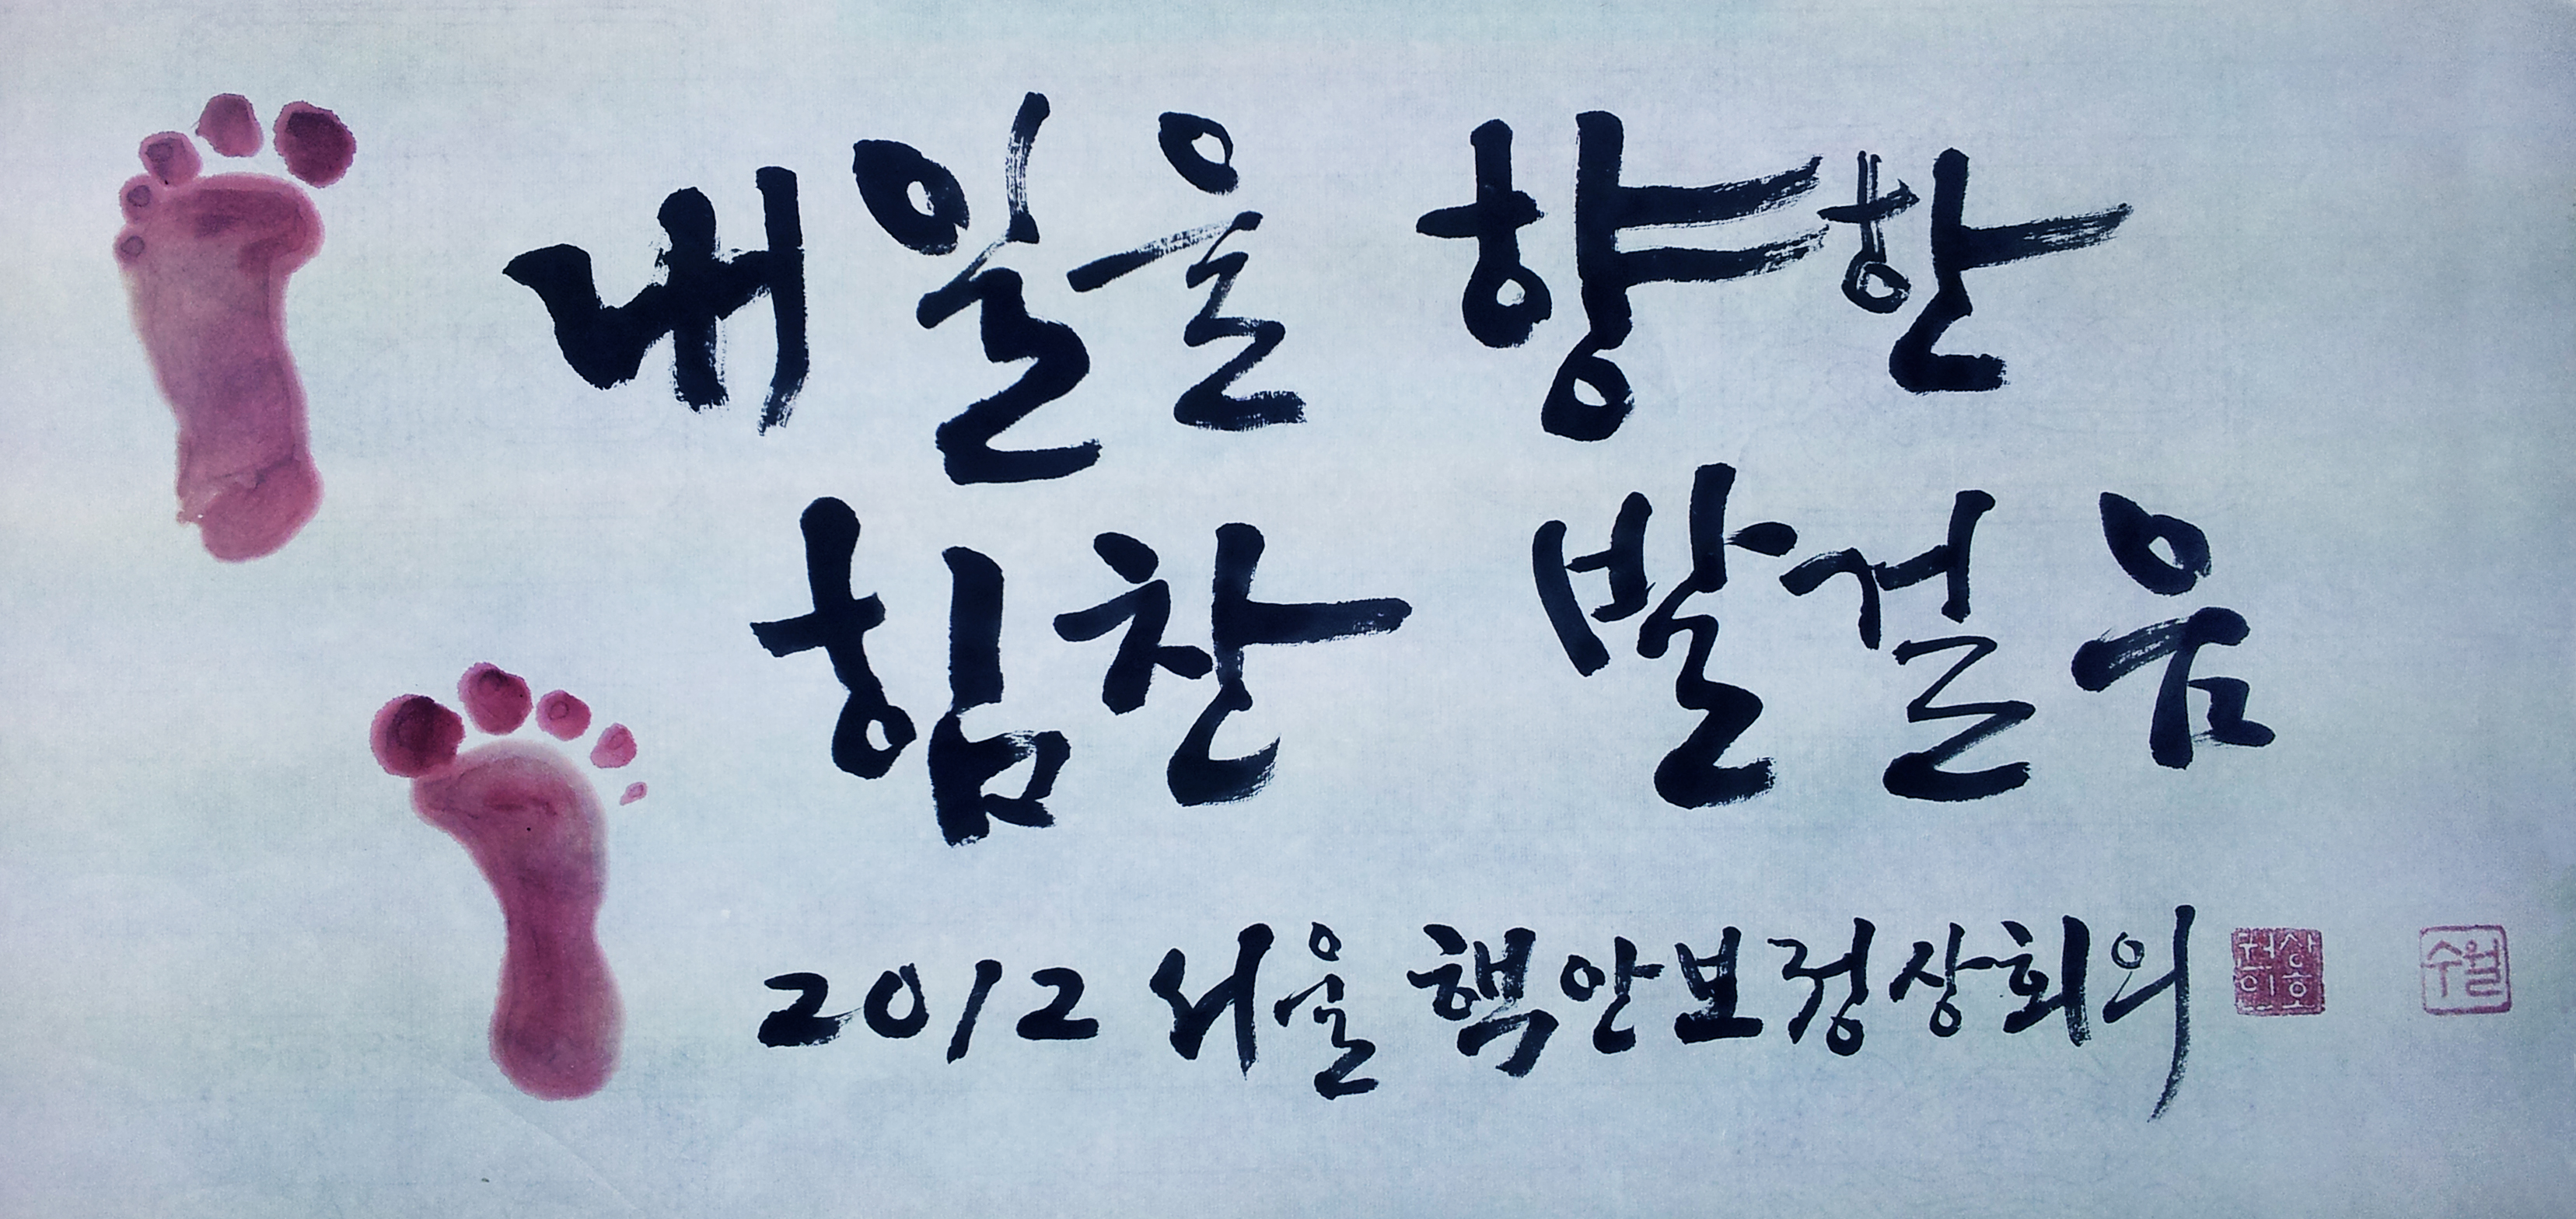 내일을 향한
힘찬 발걸음
2012 서울 핵안보정상회의
수월